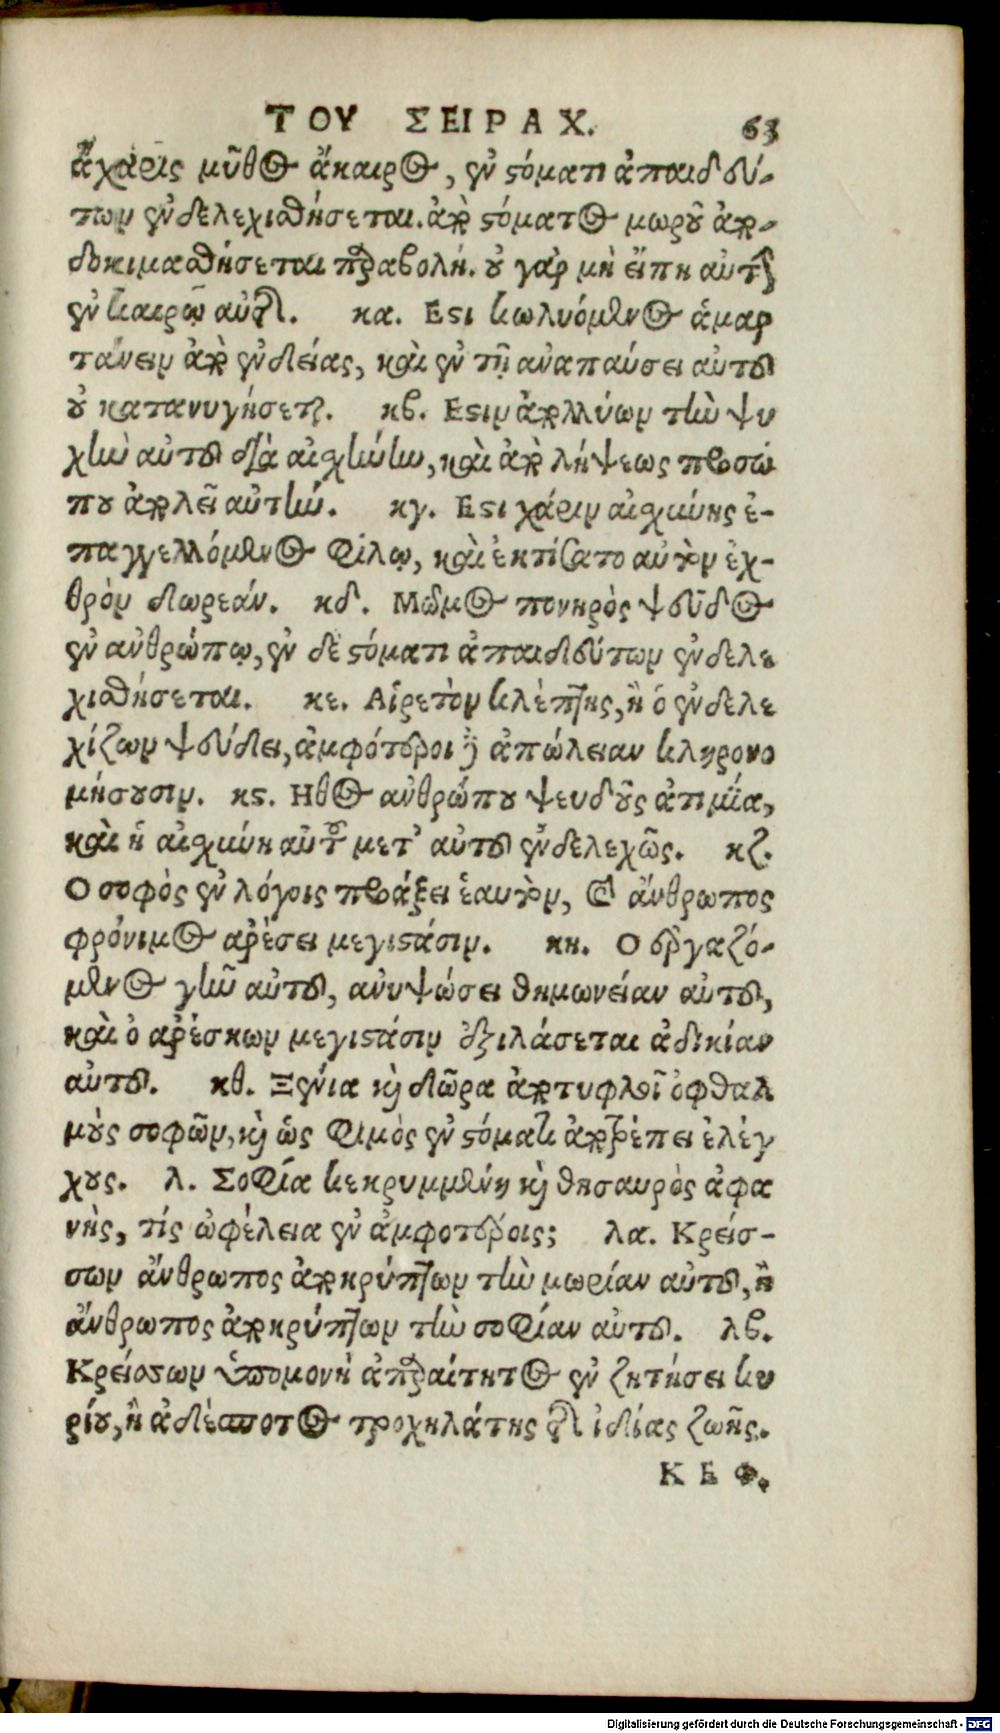 ΤΟΥ ΣΕΙΡΑΧ. 63
ἄχαρις μῦθος ἄκαιρος, ἐν στόματι ἀπαιδεύ-
των ἐνδελεχισθήσεται. ἀπὸ στόματος μωροῦ ἀπο-
δοκιμασθήσεται παραβολή. οὐ γὰρ μὴ εἴπῃ αὐτὴν
ἐν καιρῷ αὐτῆς. κα. Εστι κωλυόμενος ἁμαρ
τάνειν ἀπὸ ἐνδείας, καὶ ἐν τῇ ἀναπαύσει αὐτοῦ
οὐ κατανυγήσεται. κβ. Εστιν ἀπολλύων τὴν ψυ
χὴν αὐτοῦ διὰ αἰσχύνην, καὶ ἀπὸ λήψεως προσώ
που ἀπολεῖ αὐτήν. κγ. Εστι χάριν αἰσχύνης ἐ-
παγγελλόμενος φίλῳ, καὶ ἐκτίσατο αὐτὸν ἐχ-
θρὸν δωρεάν. κδ. Μῶμος πονηρὸς ψεῦδος
ἐν ἀνθρώπῳ, ἐν δὲ στόματι ἀπαιδεύτων ἐνδελε
χισθήσεται. κε. Αἱρετὸν κλέπτης, ἢ ὁ ἐνδελε
χίζων ψεύδει, ἀμφότεροι δὲ ἀπώλειαν κληρονο
μήσουσιν. κς. Ηθος ἀνθρώπου ψευδοῦς ἀτιμία,
καὶ ἡ αἰσχύνη αὐτοῦ μετ' αὐτοῦ ἐνδελεχῶς. κζ.
Ο σοφὸς ἐν λόγοις προάξει ἑαυτὸν, καὶ ἄνθρωπος
φρόνιμος ἀρέσει μεγιστάσιν. κη. Ο ἐργαζό-
μενος γῆν αὐτοῦ, ἀνυψώσει θημωνείαν αὐτοῦ,
καὶ ὁ ἀρέσκων μεγιστάσιν ἐξιλάσεται ἀδικίαν
αὐτοῦ. κθ. Ξένια καὶ δῶρα ἀποτυφλοῖ ὀφθαλ
μοὺς σοφῶν, καὶ ὡς φιμὸς ἐν στόματι ἀποτρέπει ἐλέγ
χους. λ. Σοφία κεκρυμμένη καὶ θησαυρὸς ἀφα
νὴς, τίς ὠφέλεια ἐν ἀμφοτέροις; λα. Κρείσ-
σων ἄνθρωπος ἀποκρύπτων τὴν μωρίαν αὐτοῦ, ἢ
ἄνθρωπος ἀποκρύπτων τὴν σοφίαν αὐτοῦ. λβ.
Κρείσσων ὑπομονὴ ἀπαραίτητος ἐν ζητήσει κυ
ρίου, ἢ ἀδέσποτος τροχηλάτης τῆς ἰδίας ζωῆς.
ΚΕΦ.
Digitalisierung gefördert durch die Deutsche Forschungsgemeinschaft - DFG